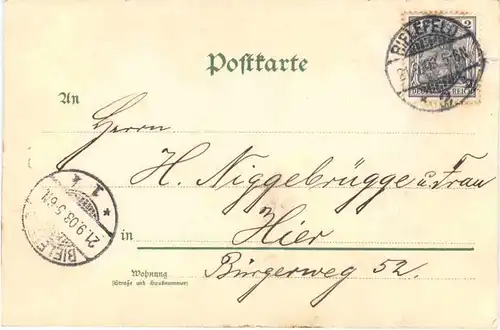 BIELEFELD
2
REICH
Postkarte
An
Herrn
H. Niggebrügge u. Frau
in Hier
Bürgerweg 52.
Wohnung
(Straße und Hausnummer)
BIELE
21.9.03. 5-6N.
* 1 *